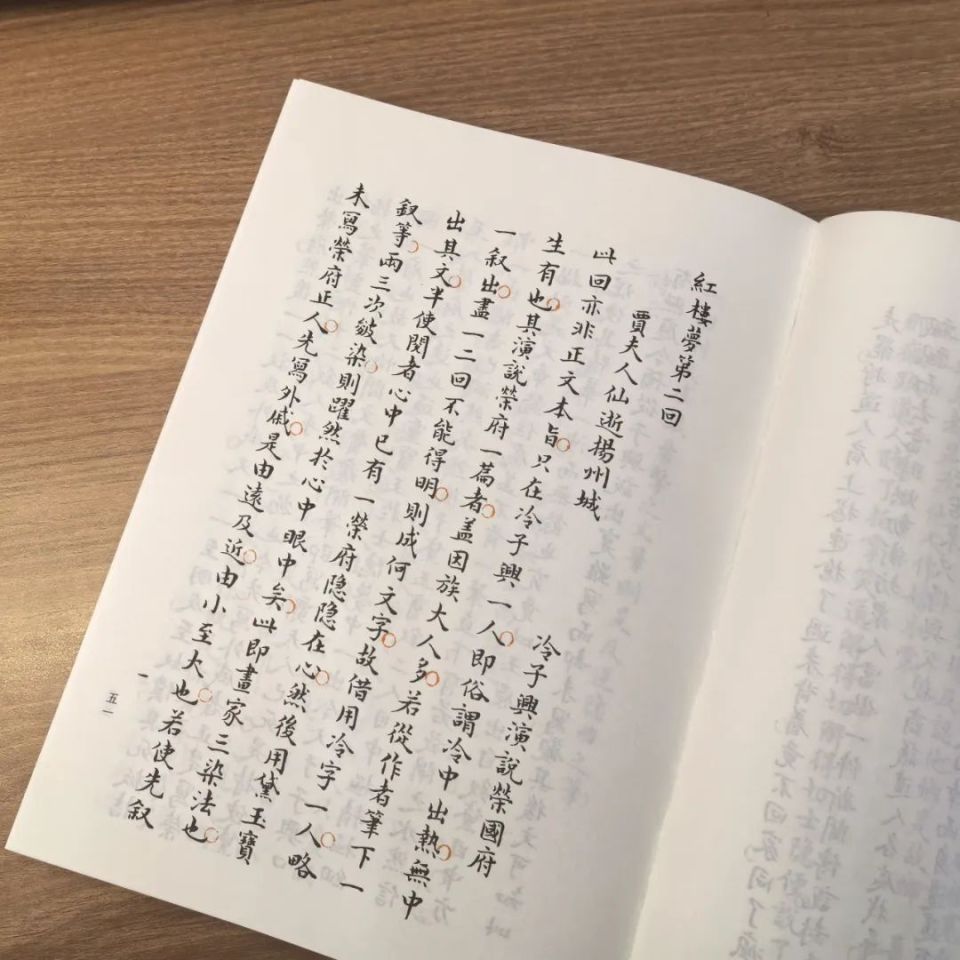 紅樓夢第二回
賈夫人仙逝揚州城 冷子興演說榮國府
此回亦非正文本旨只在冷子興一人即俗謂冷中出熱無中
生有也其演說榮府一篇者蓋因族大人多若從作者筆下一
一叙出盡一二回不能得明則成何文字故借用冷字一人略
出其文半使閱者心中已有一榮府隱隱在心然後用黛玉寶
釵等兩三次皴染則躍然於心中眼中矣此即畫家三染法也
未寫榮府正人先寫外戚是由遠及近由小至大也若使先叙
五一